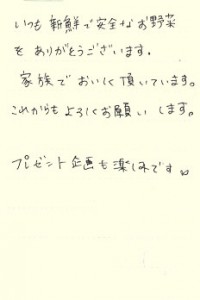 いつも新鮮で安全なお野菜
を ありがとうございます.
家族でおいしく頂いています。
これからもよろしくお願いします。
プレゼント企画も楽しみです。